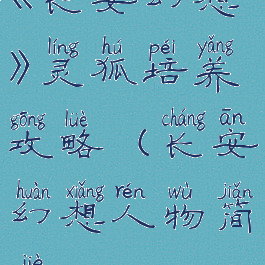 《长安幻想
líng hú péi yǎng
》灵狐培养
gōng lüè cháng ān
攻略（长安
huàn xiǎng rén wù jiǎn
幻想人物简
jiè